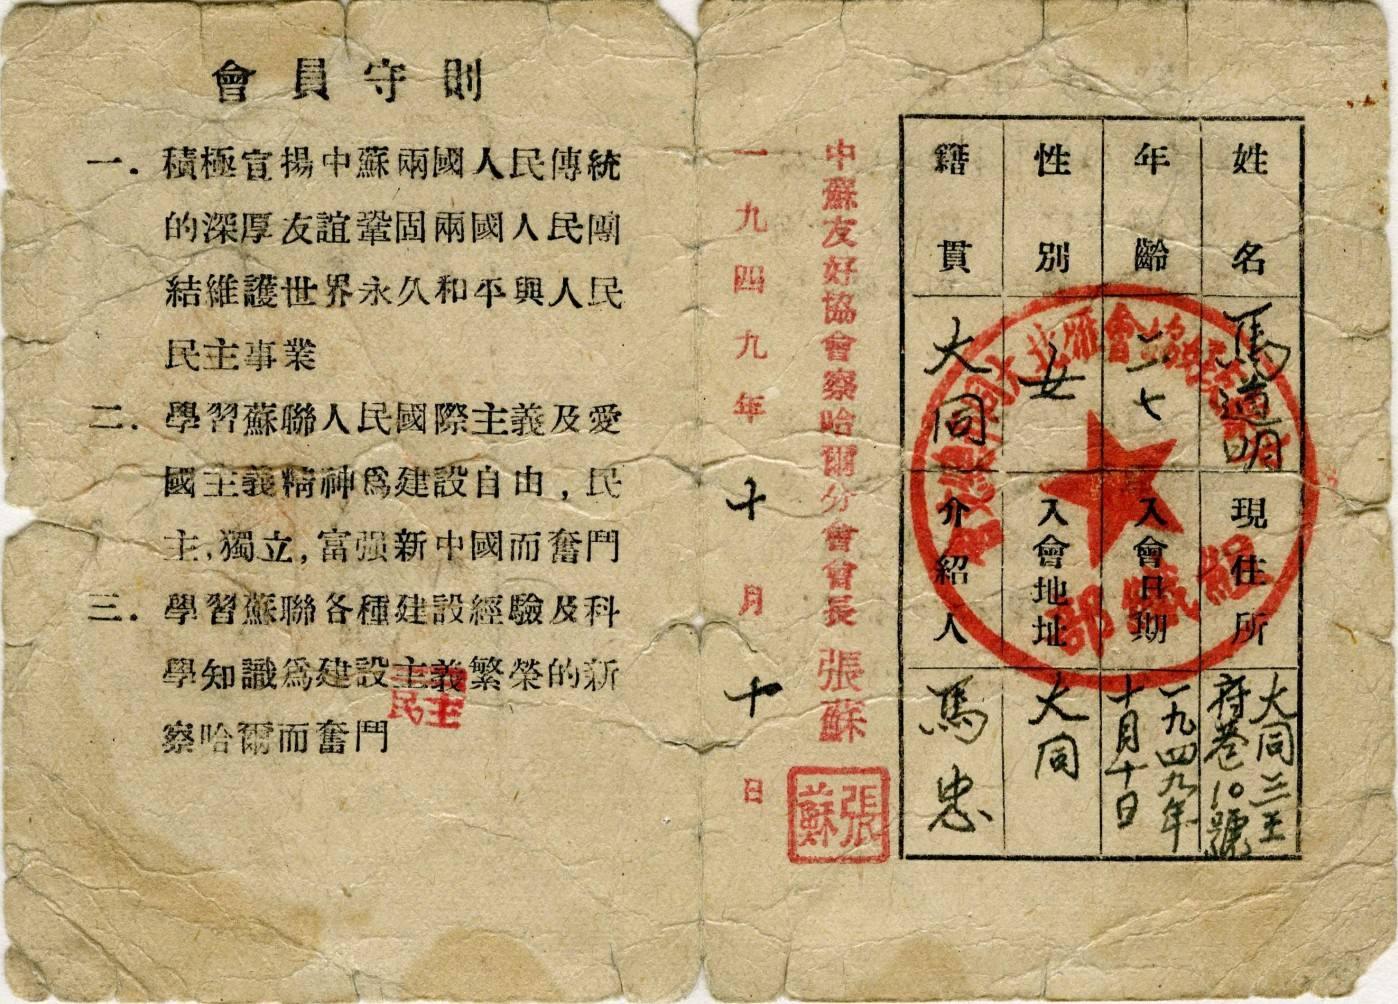 會員守則
一.積極宣揚中蘇兩國人民傳統
的深厚友誼鞏固兩國人民團
結維護世界永久和平與人民
民主事業
二.學習蘇聯人民國際主義及愛
國主義精神爲建設自由,民
主,獨立,富强新中國而奮鬥
三.學習蘇聯各種建設經驗及科
學知識爲建設主義繁榮的新
察哈爾而奮鬥
民主
姓名 馬道明 現住所 大同三王府巷10號
年齡 二七 入會日期 一九四九年十月十日
性別 女 入會地址 大同
籍貫 大同 介紹人 馬忠
組織部
中蘇友好協會察哈爾分會會長 張蘇
張蘇
一九四九年十月十日